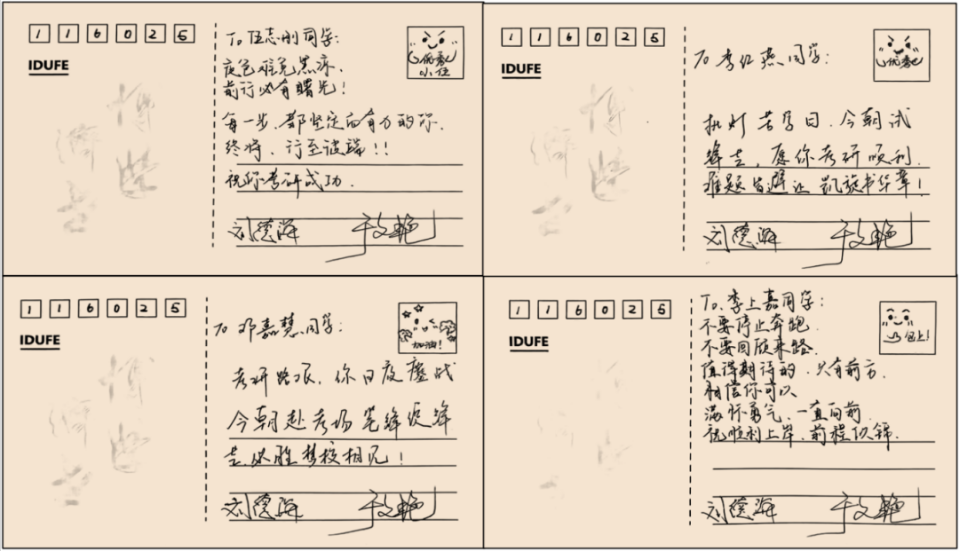 116025
IDUFE
博
济
世
To 伍志刚同学:
夜色难免黑凉,
前行必有曙光!
每一步,都坚定向有力的你,
终将,行至彼端!!
祝你考研成功.
优秀
小伍
刘德海 于文艳
116025
IDUFE
博
济
世
To 李红燕同学:
挑灯苦学日,今朝试
锋去,愿你考研顺利.
难题皆避让 凯旋书华章!
优秀
刘德海 于文艳
116025
IDUFE
博
济
世
To 邓嘉慧同学:
考研路艰,你日夜鏖战
今朝赴考场 笔锋绽锋
去,必胜 梦校相见!
加油!
刘德海 于文艳
116025
IDUFE
To.李上嘉同学:
不要停止奔跑.
不要回顾来路.
值得期待的,只有前方.
相信你可以
满怀勇气,一直向前.
祝胜利上岸,前程似锦.
必上!
刘德海 于文艳